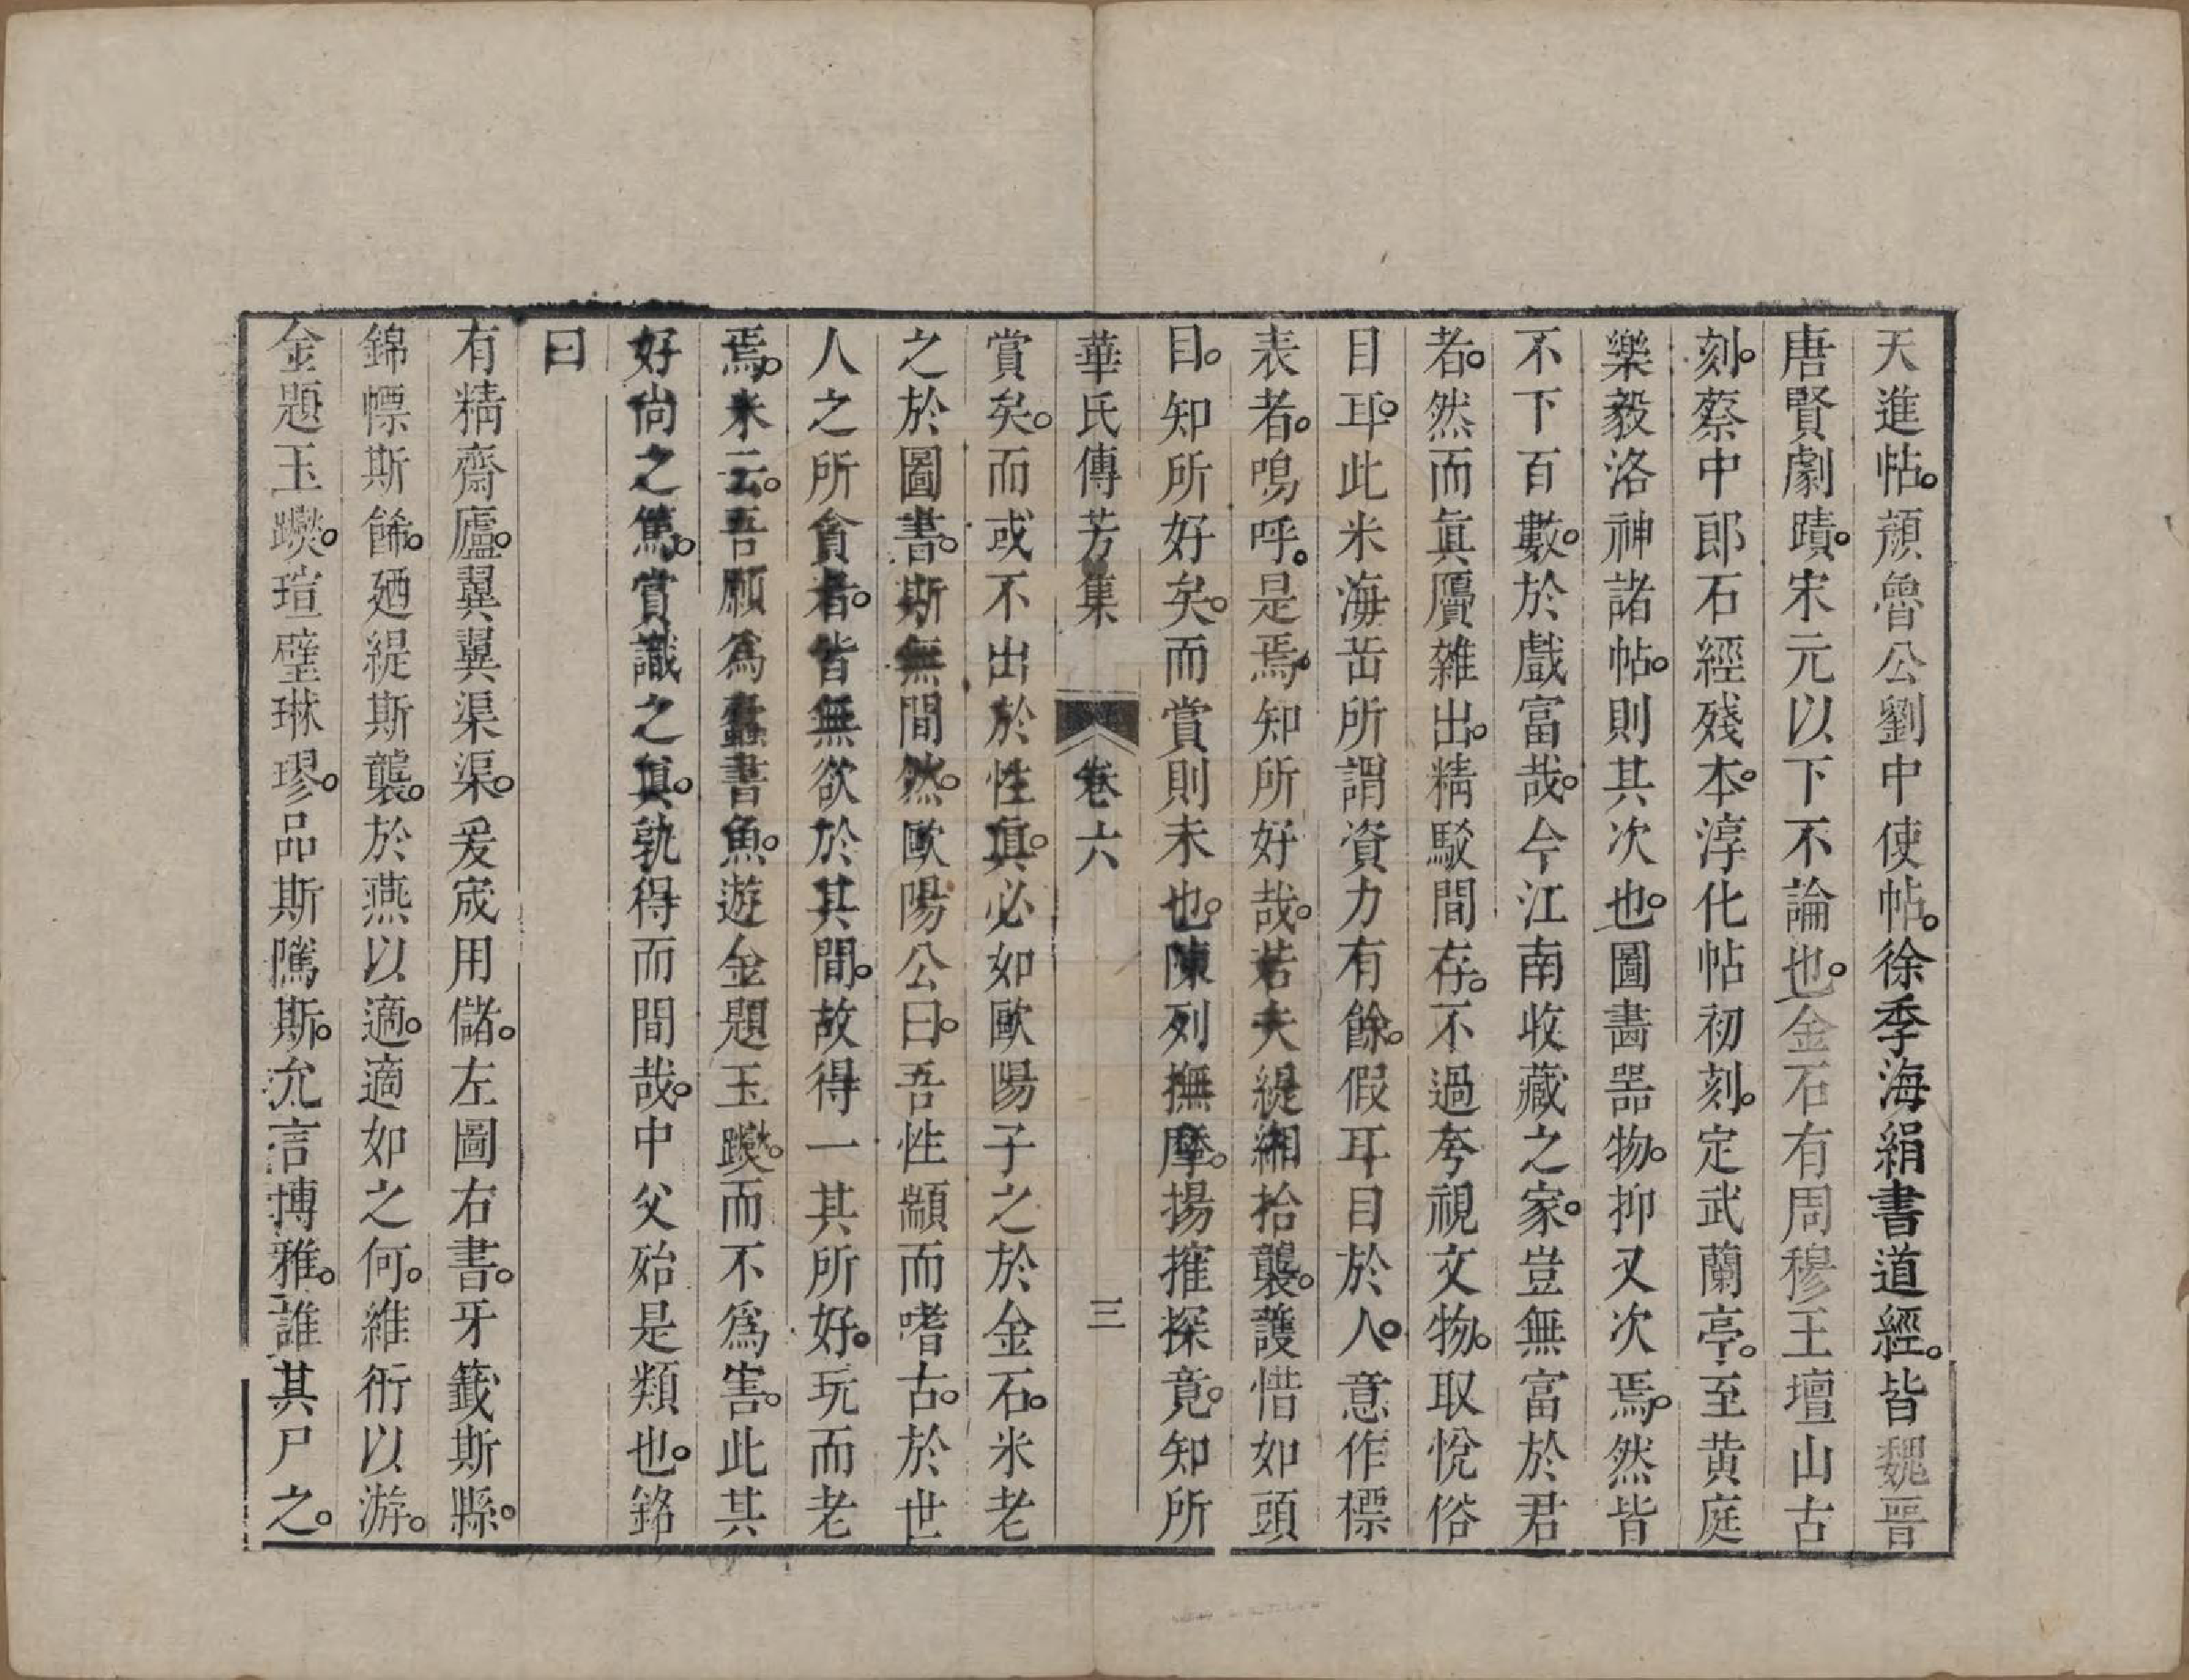 天進帖。顏魯公劉中使帖。徐季海絹書道經。皆魏晉
唐賢劇蹟。宋元以下不論也。金石有周穆王壇山古
刻。蔡中郎石經殘本。淳化帖初刻。定武蘭亭。至黃庭
樂毅洛神諸帖。則其次也。圖畵噐物。抑又次焉。然皆
不下百數。於戲富哉。今江南收藏之家。豈無富於君
者。然而眞贋雜出。精駁間存。不過夸視文物。取悅俗
目耳。此米海岳所謂資力有餘。假耳目於人。意作標
表者。嗚呼。是焉知所好哉。若夫緹緗拾襲。護惜如頭
目。知所好矣。而賞則未也。陳列撫摩。揚搉探竟。知所
華氏傳芳集 卷六 三
賞矣。而或不出於性眞。必如歐陽子之於金石。米老
之於圖書。斯無間然。歐陽公曰。吾性顓而嗜古。於世
人之所貪者。皆無欲於其間。故得一其所好。玩而老
焉。米云。吾願爲蠹書魚。遊金題玉躞。而不爲害。此其
好尙之篤。賞識之眞。孰得而間哉。中父殆是類也。銘
曰
有精齋廬。翼翼渠渠。爰宬用儲。左圖右書。牙籤斯縣。
錦幖斯餙。廼緹斯襲。於燕以適。適如之何。維衎以游。
金題玉躞。瑄璧琳璆。品斯隲斯。允言博雅。誰其尸之。